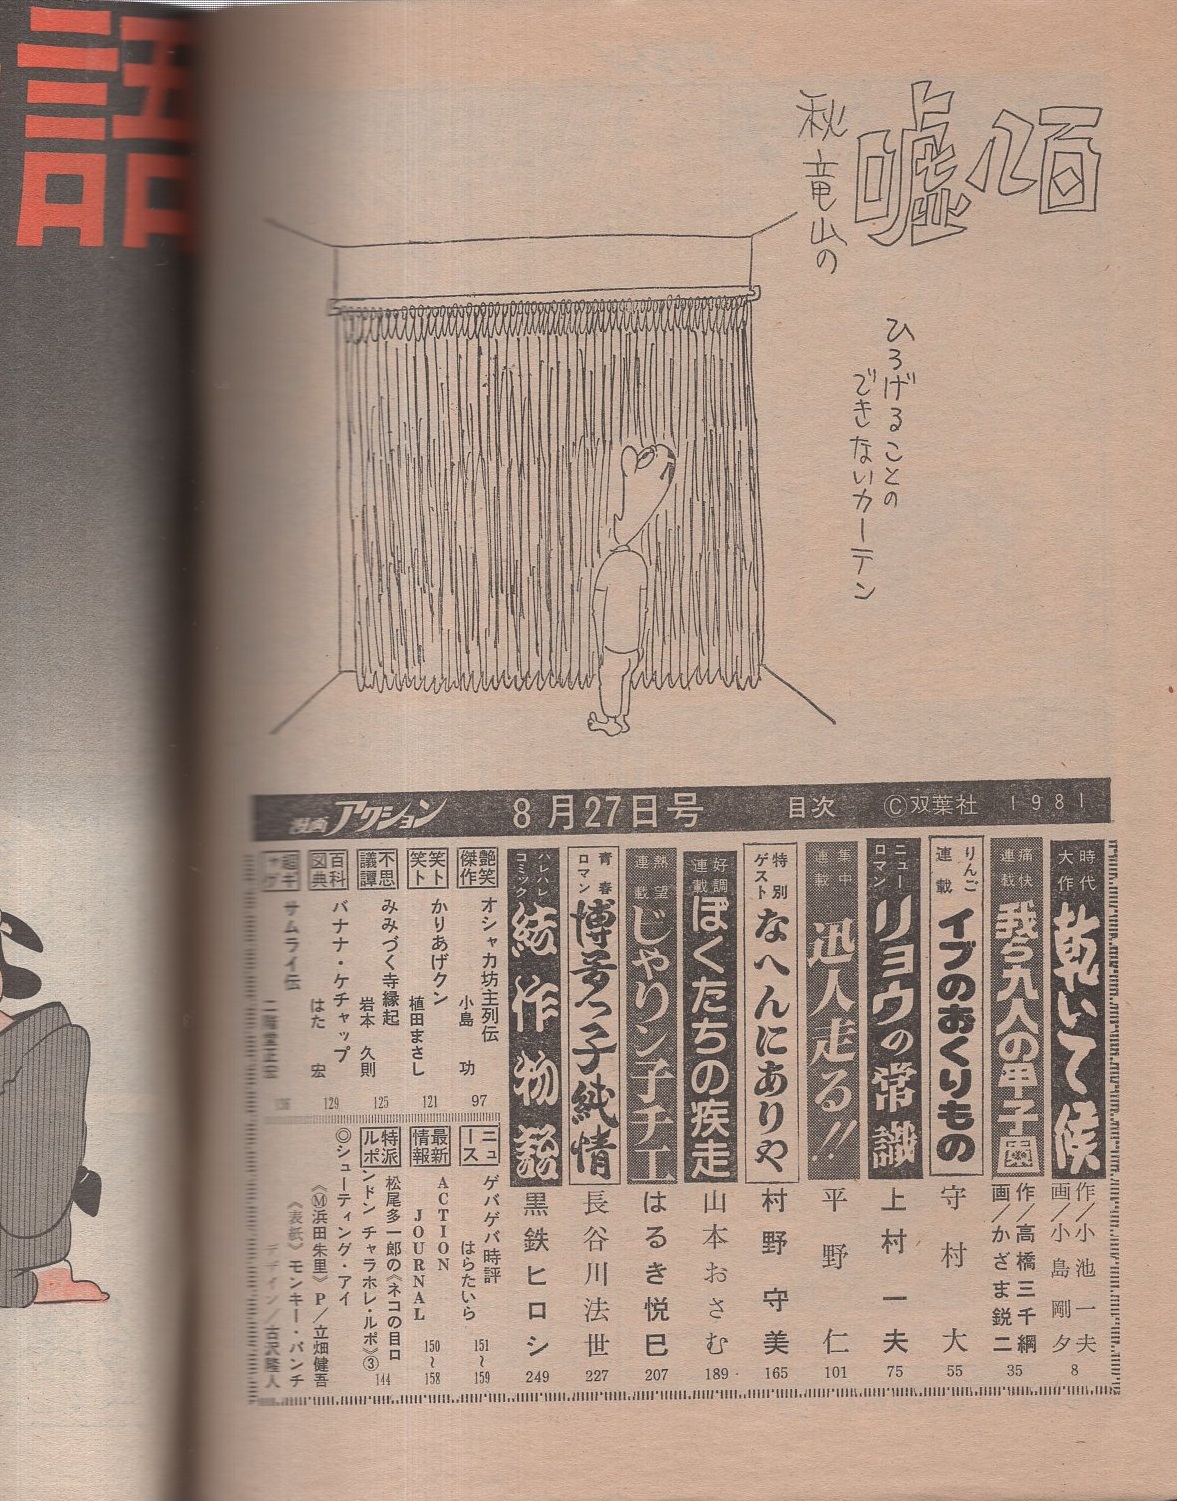 語
嘘八百
秋竜山の
ひろげることの
できないカーテン
漫画アクション 8月27日号 目次 ©双葉社 1981
時代大作 乾いて候 作/小池一夫 画/小島剛夕 8
痛快連載 我ら九人の甲子園 作/高橋三千綱 画/かざま鋭二 35
りんご連載 イブのおくりもの 守村大 55
ニューロマン リョウの常識 上村一夫 75
集中連載 迅人走る!! 平野仁 101
特別ゲスト なへんにありや 村野守美 165
好調連載 ぼくたちの疾走 山本おさむ 189
熱望連載 じゃりン子チエ はるき悦巳 207
青春ロマン 博多っ子純情 長谷川法世 227
ハレハレコミック 結作物語 黒鉄ヒロシ 249
艶笑傑作 オシャカ坊主列伝 小島功 97
笑ト笑ト かりあげクン 植田まさし 121
不思議譚 みみづく寺縁起 岩本久則 125
百科図典 バナナ・ケチャップ はた宏 129
サムライ伝 二階堂正宏 136
ニュース ゲバゲバ時評 はらたいら 151〜159
最新情報 ACTION JOURNAL 150〜158
特派ルポ ンドン チャラホレ・ルポ③ 松尾多一郎の《ネコの目ロ 144
◎シューティング・アイ
《Ⓜ浜田朱里》 P/立畑健吾
《表紙》 モンキー・パンチ
デザイン/古沢隆人